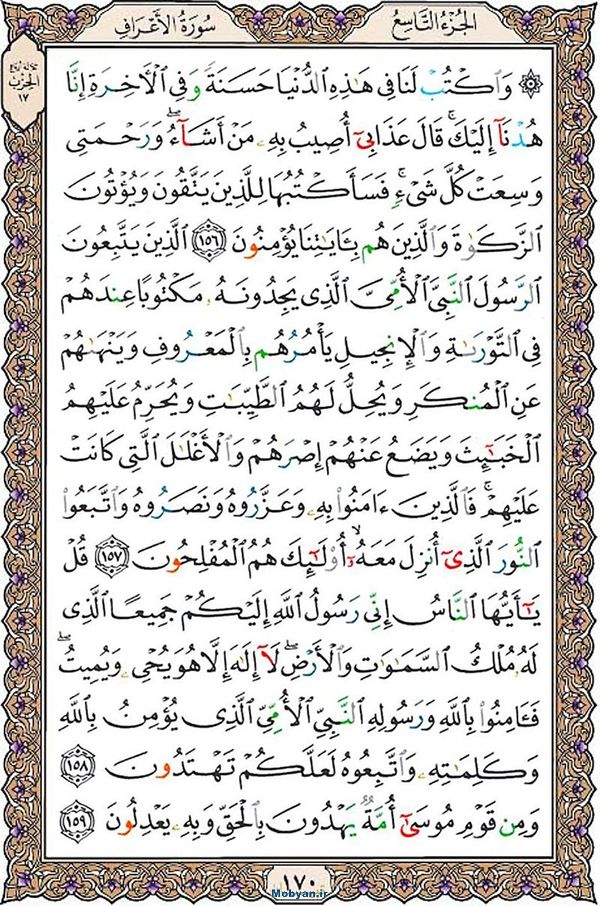 سُورَةُ الأَعْرَافِ
الجُزْءُ التَّاسِعُ
الحِزْب
١٧
۞ وَٱكْتُبْ لَنَا فِى هَـٰذِهِ ٱلدُّنْيَا حَسَنَةً وَفِى ٱلْـَٔاخِرَةِ إِنَّا
هُدْنَآ إِلَيْكَ ۚ قَالَ عَذَابِىٓ أُصِيبُ بِهِۦ مَنْ أَشَآءُ ۖ وَرَحْمَتِى
وَسِعَتْ كُلَّ شَىْءٍ ۚ فَسَأَكْتُبُهَا لِلَّذِينَ يَتَّقُونَ وَيُؤْتُونَ
ٱلزَّكَوٰةَ وَٱلَّذِينَ هُم بِـَٔايَـٰتِنَا يُؤْمِنُونَ ١٥٦ ٱلَّذِينَ يَتَّبِعُونَ
ٱلرَّسُولَ ٱلنَّبِىَّ ٱلْأُمِّىَّ ٱلَّذِى يَجِدُونَهُۥ مَكْتُوبًا عِندَهُمْ
فِى ٱلتَّوْرَىٰةِ وَٱلْإِنجِيلِ يَأْمُرُهُم بِٱلْمَعْرُوفِ وَيَنْهَىٰهُمْ
عَنِ ٱلْمُنكَرِ وَيُحِلُّ لَهُمُ ٱلطَّيِّبَـٰتِ وَيُحَرِّمُ عَلَيْهِمُ
ٱلْخَبَـٰٓئِثَ وَيَضَعُ عَنْهُمْ إِصْرَهُمْ وَٱلْأَغْلَـٰلَ ٱلَّتِى كَانَتْ
عَلَيْهِمْ ۚ فَٱلَّذِينَ ءَامَنُوا۟ بِهِۦ وَعَزَّرُوهُ وَنَصَرُوهُ وَٱتَّبَعُوا۟
ٱلنُّورَ ٱلَّذِىٓ أُنزِلَ مَعَهُۥٓ ۙ أُو۟لَـٰٓئِكَ هُمُ ٱلْمُفْلِحُونَ ١٥٧ قُلْ
يَـٰٓأَيُّهَا ٱلنَّاسُ إِنِّى رَسُولُ ٱللَّهِ إِلَيْكُمْ جَمِيعًا ٱلَّذِى
لَهُۥ مُلْكُ ٱلسَّمَـٰوَٰتِ وَٱلْأَرْضِ ۖ لَآ إِلَـٰهَ إِلَّا هُوَ يُحْىِۦ وَيُمِيتُ ۖ
فَـَٔامِنُوا۟ بِٱللَّهِ وَرَسُولِهِ ٱلنَّبِىِّ ٱلْأُمِّىِّ ٱلَّذِى يُؤْمِنُ بِٱللَّهِ
وَكَلِمَـٰتِهِۦ وَٱتَّبِعُوهُ لَعَلَّكُمْ تَهْتَدُونَ ١٥٨
وَمِن قَوْمِ مُوسَىٰٓ أُمَّةٌ يَهْدُونَ بِٱلْحَقِّ وَبِهِۦ يَعْدِلُونَ ١٥٩
١٧٠
Mobyan.ir